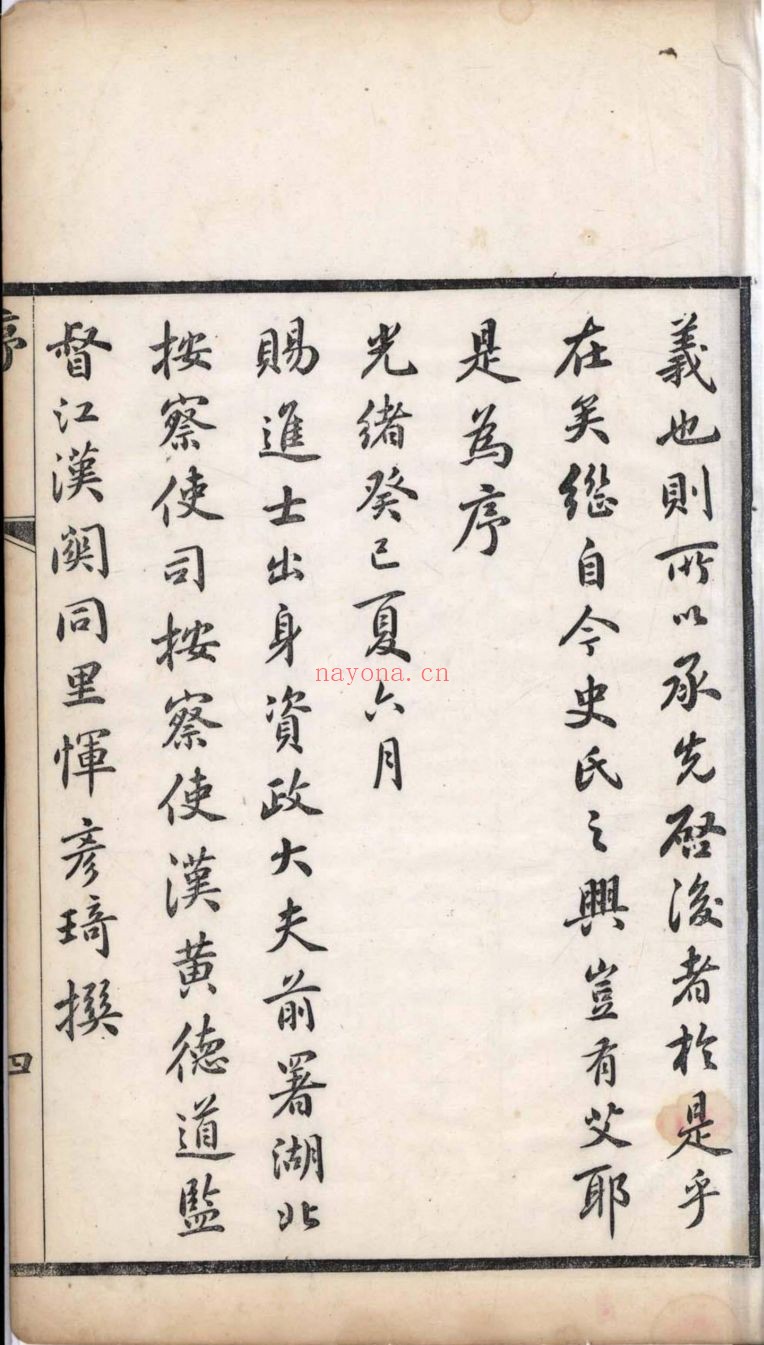 義也則所以承先啓後者於是乎
在矣繼自今史氏之興豈有艾耶
是為序
光緒癸巳夏六月
賜進士出身資政大夫前署湖北
按察使司按察使漢黄德道監
督江漢關同里惲彥琦撰
序
四
nayona.cn